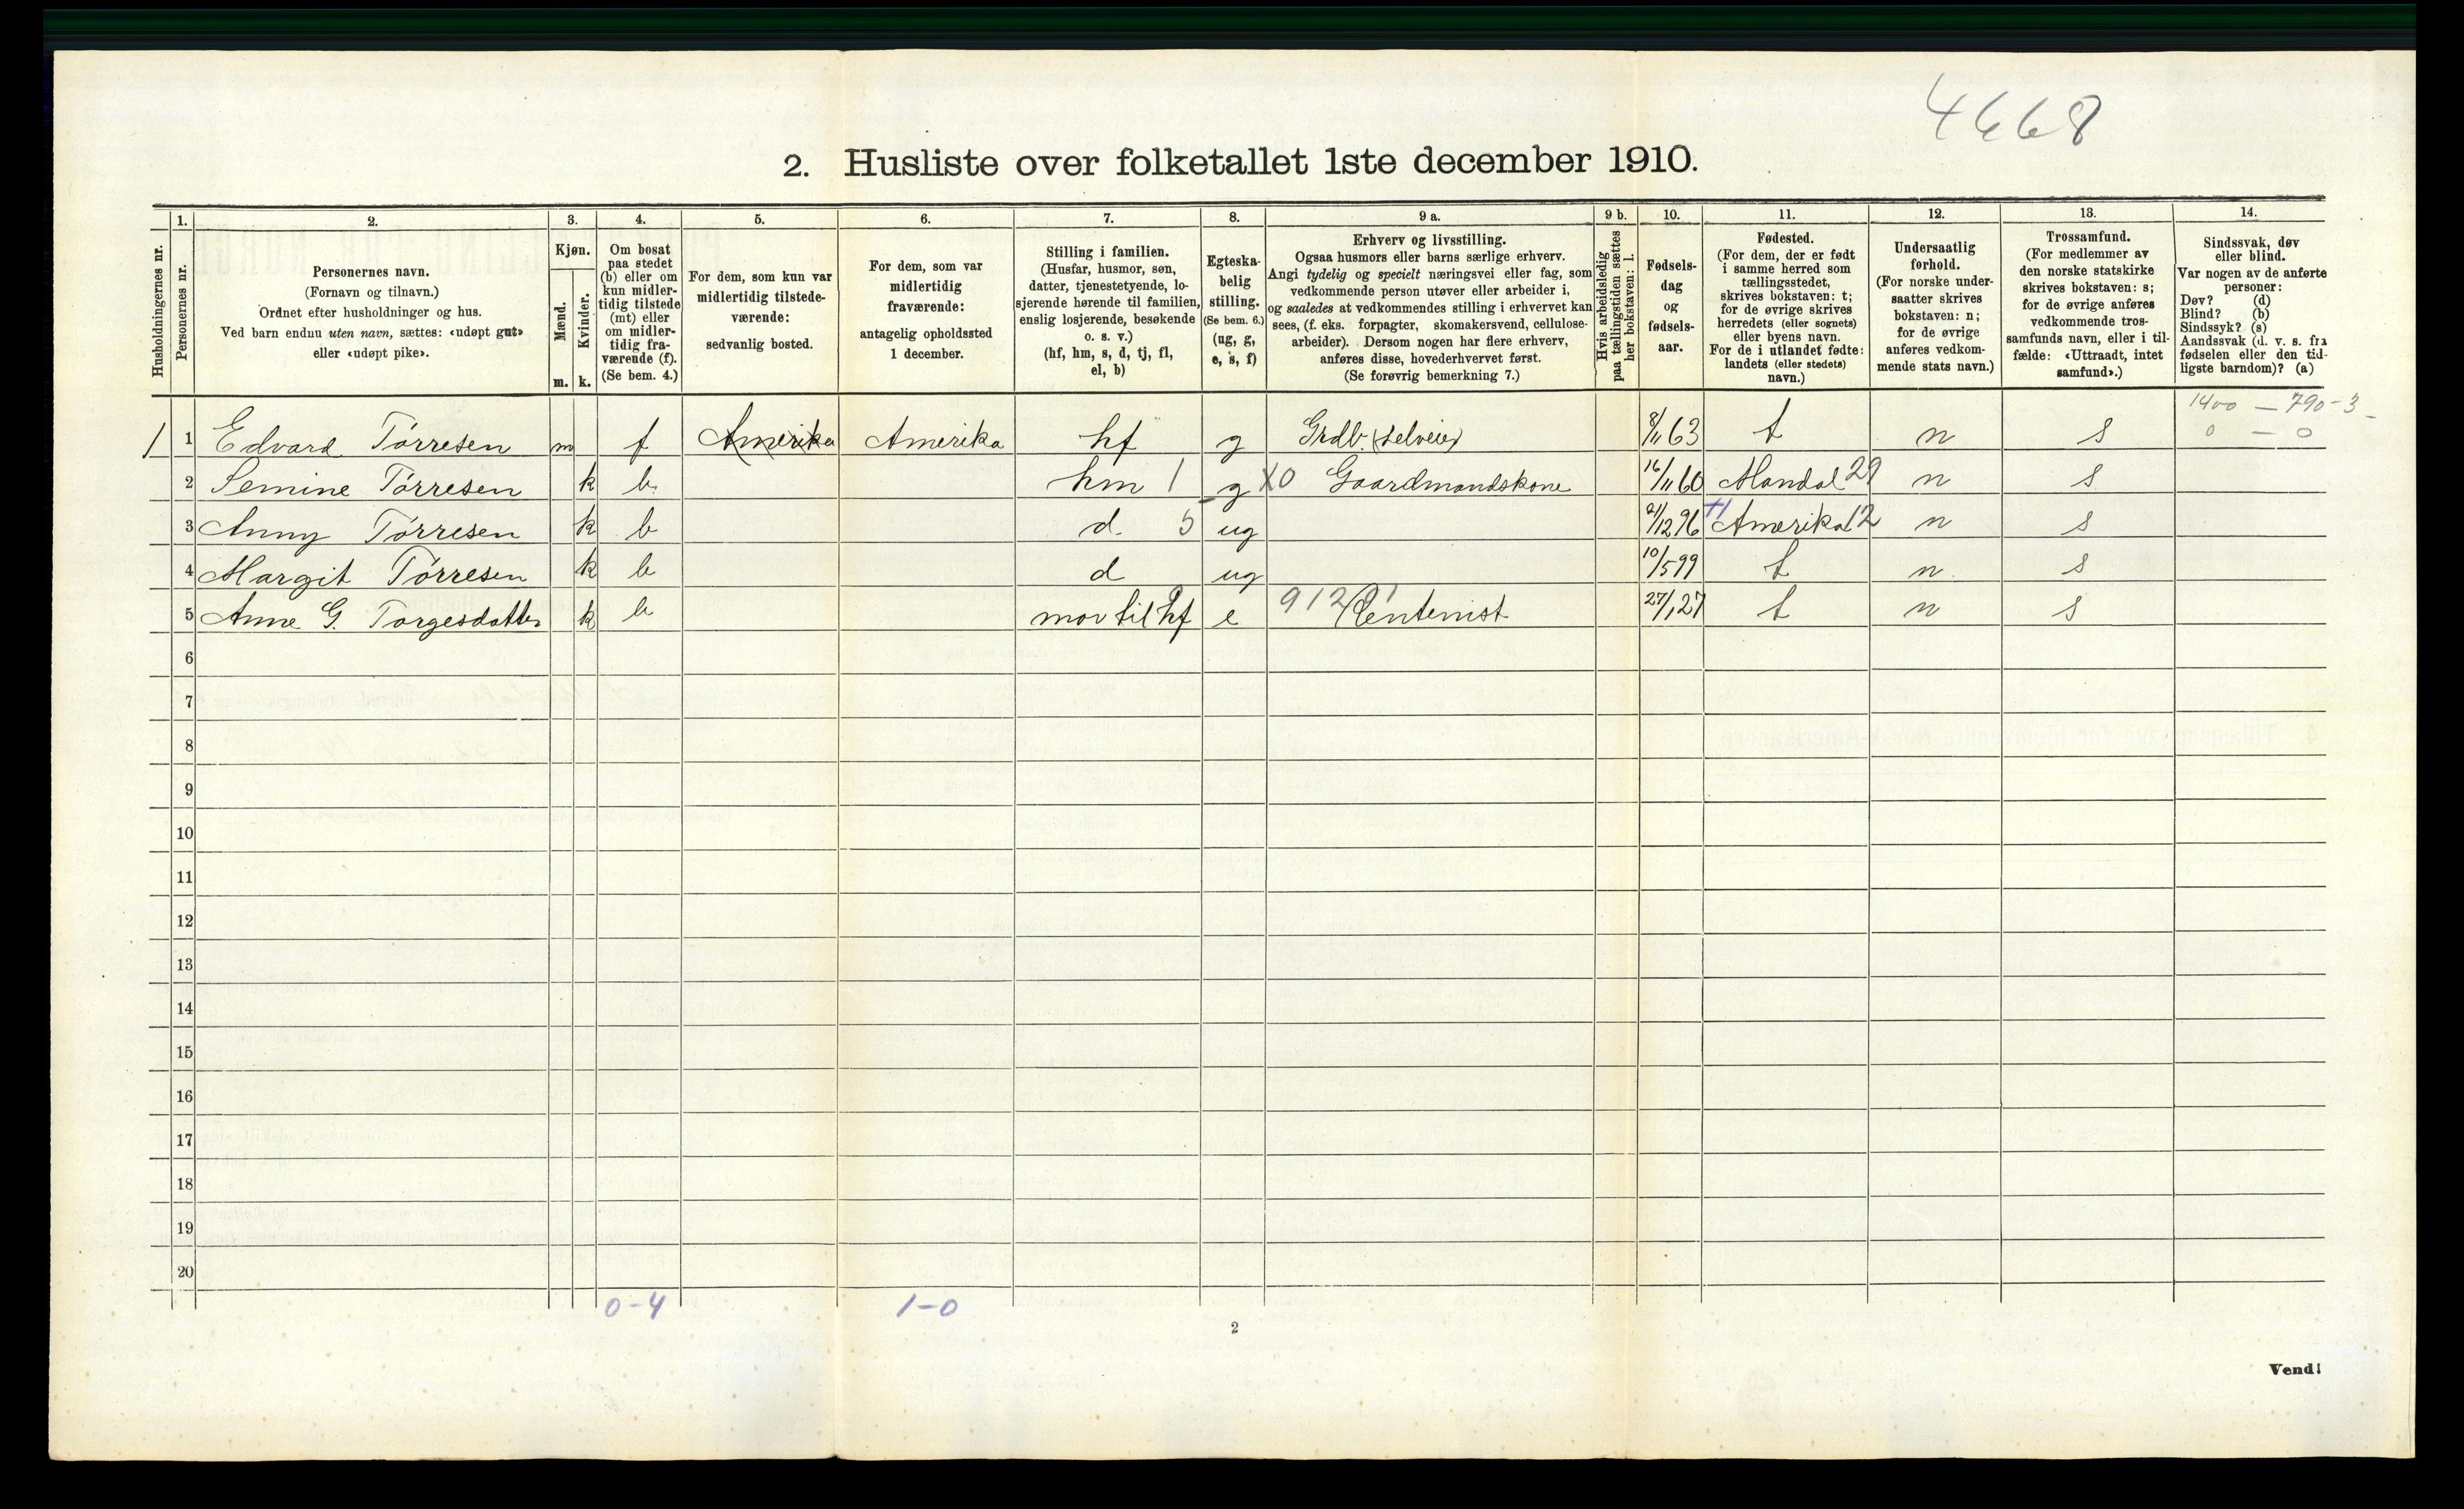 4668
2. Husliste over folketallet 1ste december 1910.
Husholdningernes nr.
1.
Personernes nr.
2.
Personernes navn.
(Fornavn og tilnavn.)
Ordnet efter husholdninger og hus.
Ved barn endnu uten navn, sættes: «udøpt gut»
eller «udøpt pike».
3.
Kjøn.
Mænd.
Kvinder.
m. k.
4.
Om bosat
paa stedet
(b) eller om
kun midler-
tidig tilstede
(mt) eller
om midler-
tidig fra-
værende (f).
(Se bem. 4.)
5.
For dem, som kun var
midlertidig tilstede-
værende:
sedvanlig bosted.
6.
For dem, som var
midlertidig
fraværende:
antagelig opholdssted
1 december.
7.
Stilling i familien.
(Husfar, husmor, søn,
datter, tjenestetyende, lo-
sjerende hørende til familien,
enslig losjerende, besøkende
o. s. v.)
(hf, hm, s, d, tj, fl,
el, b)
8.
Egteska-
belig
stilling.
(Se bem. 6.)
(ug, g,
e, s, f)
9 a.
Erhverv og livsstilling.
Ogsaa husmors eller barns særlige erhverv.
Angi tydelig og specielt næringsvei eller fag, som
vedkommende person utøver eller arbeider i,
og saaledes at vedkommendes stilling i erhvervet kan
sees, (f. eks. forpagter, skomakersvend, cellulose-
arbeider). Dersom nogen har flere erhverv,
anføres disse, hovederhvervet først.
(Se forøvrig bemerkning 7.)
9 b.
Hvis arbeidsledig
paa tællingstiden sættes
her bokstaven: l.
10.
Fødsels-
dag
og
fødsels-
aar.
11.
Fødested.
(For dem, der er født
i samme herred som
tællingsstedet,
skrives bokstaven: t;
for de øvrige skrives
herredets (eller sognets)
eller byens navn.
For de i utlandet fødte:
landets (eller stedets)
navn.)
12.
Undersaatlig
forhold.
(For norske under-
saatter skrives
bokstaven: n;
for de øvrige
anføres vedkom-
mende stats navn.)
13.
Trossamfund.
(For medlemmer av
den norske statskirke
skrives bokstaven: s;
for de øvrige anføres
vedkommende tros-
samfunds navn, eller i til-
fælde: «Uttraadt, intet
samfund».)
14.
Sindssvak, døv
eller blind.
Var nogen av de anførte
personer:
Døv? (d)
Blind? (b)
Sindssyk? (s)
Aandssvak (d. v. s. fra
fødselen eller den tid-
ligste barndom)? (a)
1400 — 790-3
1 1 Edvard Tørresen m f Amerika Amerika hf g Grdb. (selveier) 8/11 63 t n s 0 — 0
2 Semine Tørresen k b hm 1 g X0 Gaardmandskone 16/11 60 Mandal 29 n s
3 Anny Tørresen k b d. 5 ug 2/12 96 Amerika 12 n s
4 Margit Tørresen k b d ug 10/5 99 t n s
5 Anne G. Torgesdatter k b mor til hf e 912 Rentenist 27/1 27 t n s
6
7
8
9
10
11
12
13
14
15
16
17
18
19
20
0-4 1-0
2
Vend!